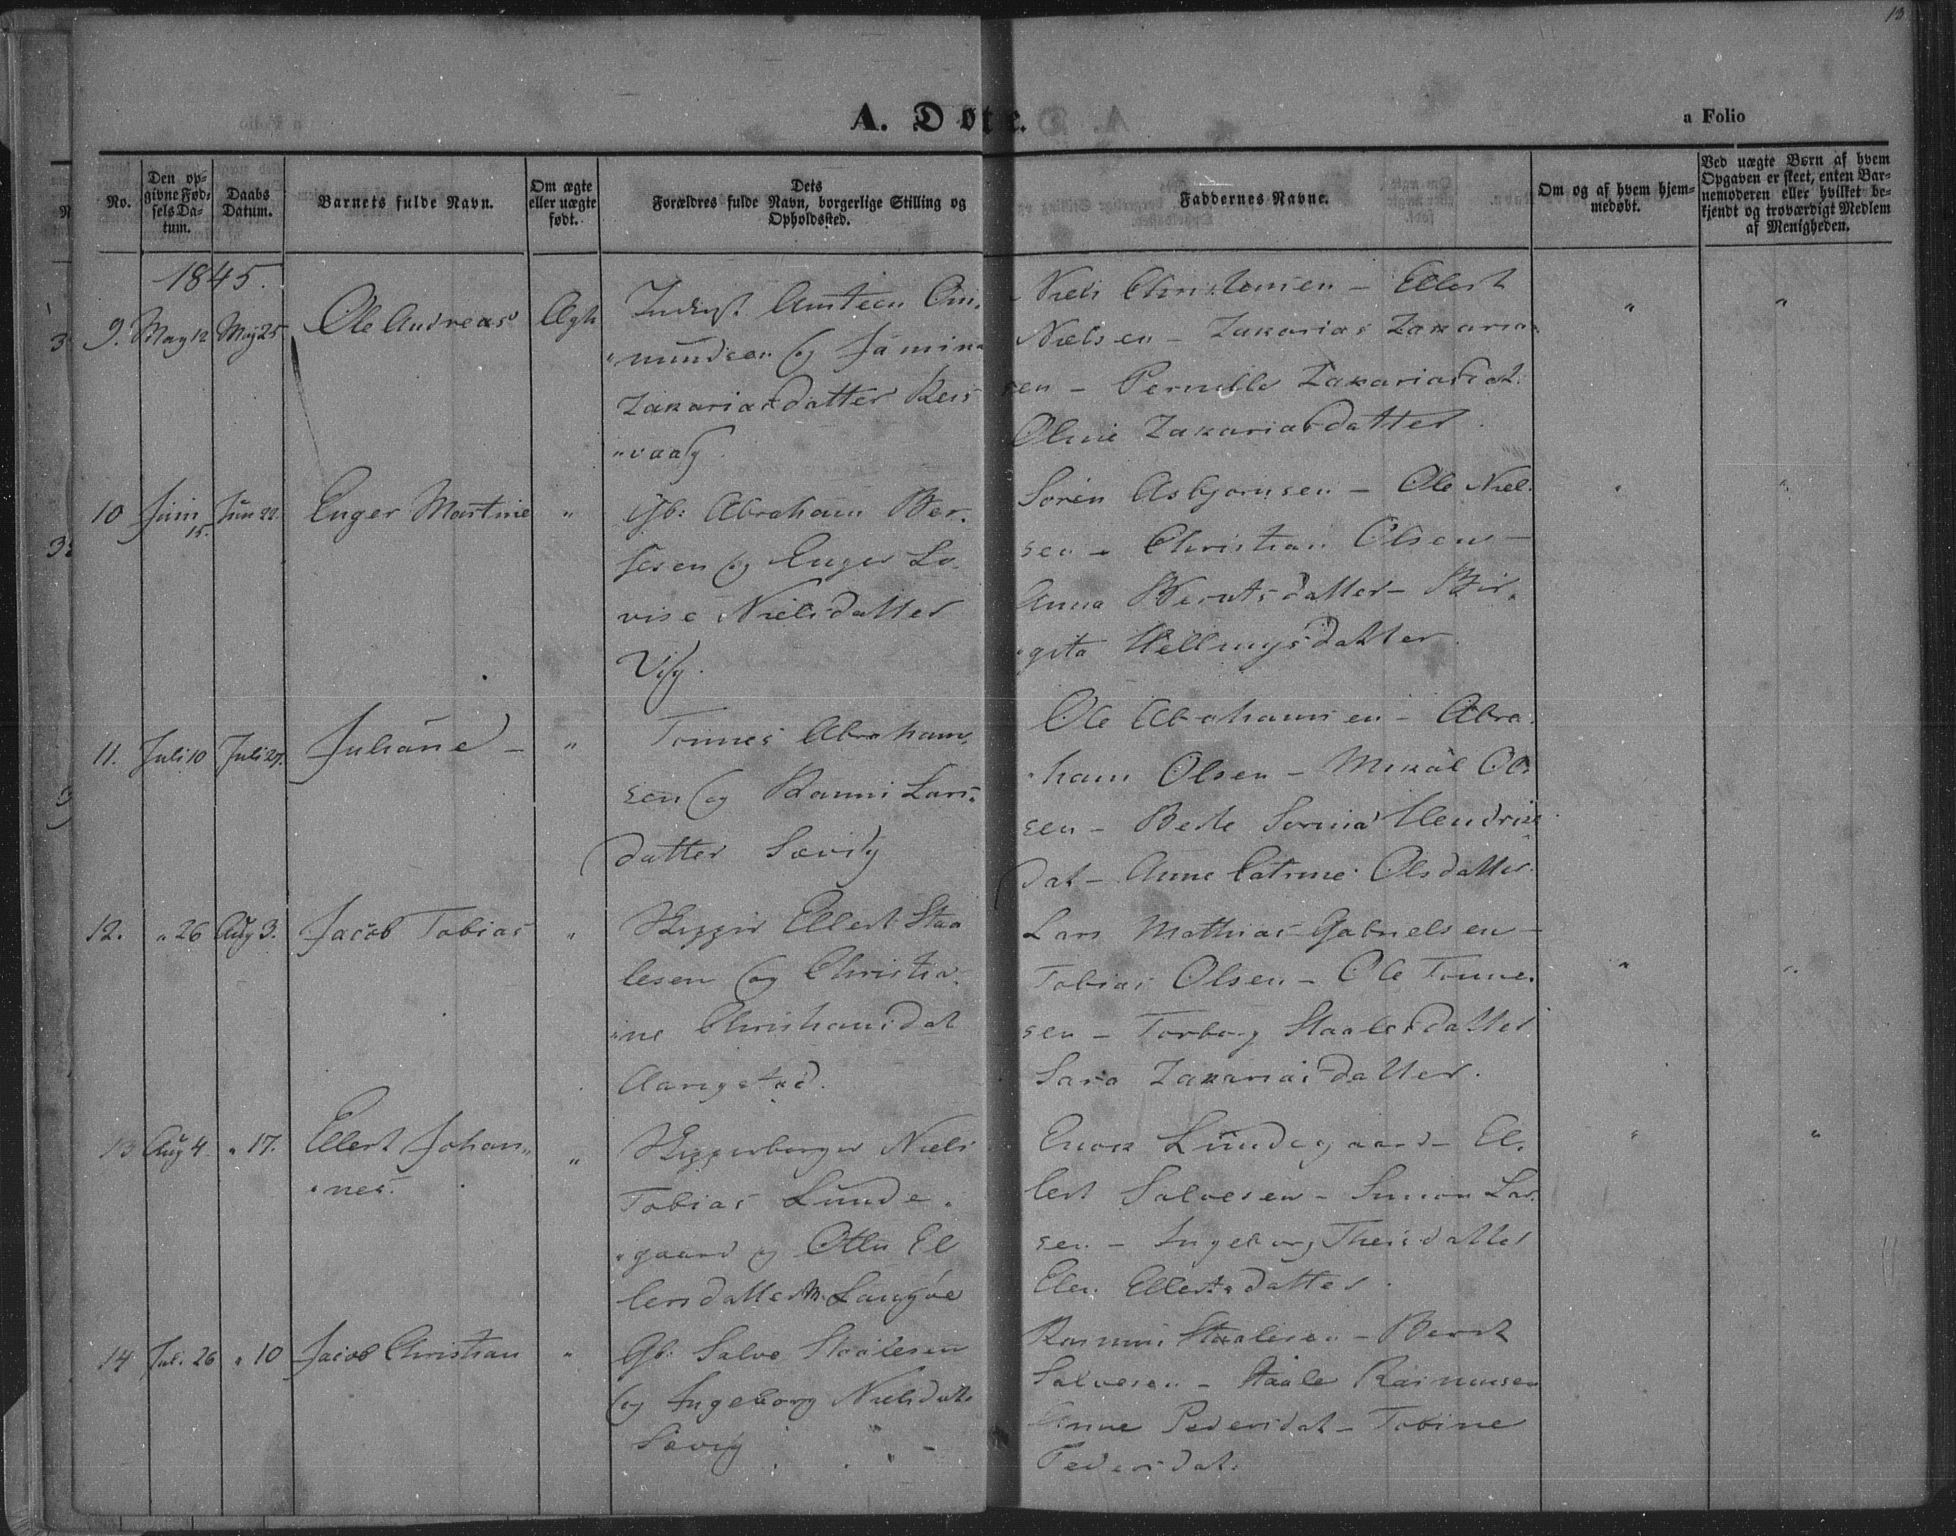 13
A. Døbte.
a Folio
No.
Den op-
givne Fød-
sels Da-
tum.
Daabs
Datum.
Barnets fulde Navn.
Om ægte
eller uægte
født.
Dets
Forældres fulde Navn, borgerlige Stilling og
Opholdssted.
Faddernes Navne.
Om og af hvem hjem-
medøbt.
Ved uægte Børn af hvem
Opgaven er skeet, enten Bar-
nemoderen eller hvilket be-
kjendt og troværdigt Medlem
af Menigheden.
1845.
9. May 12 Maj 25 Ole Andreas Ægte
Inderst
mundsen og
Zakariasdatter Reis
vaag
Niels Christensen - Ellert
Nielsen - Zakarias Zakaria
sen - Pernille Zakariasdat.
Oline Zakariasdatter.
10 Juni 15. Jun 22. Enger Martine "
Gb: Abraham Ber-
sen og Enger Lo-
vise Nielsdatter
Vig.
Søren Asbjørnsen - Ole Niel-
sen - Christian Olsen -
Anna Berntsdatter - Bir-
gita datter.
11. Juli 10 Juli 27. Juliane - "
Tønnes Abraham-
sen og Lars-
datter Sævig
Ole Abrahamsen - Abra-
ham Olsen - Mikal Ol
sen - Berte Hendriks
dat - Anne Catrine Olsdatter
12. " 26 Aug 3. Jacob Tobias "
Skipper Ellert Staa
lesen og Christia-
ine Christiansdat
Lars Mathias Gabrielsen -
Tobias Olsen - Ole Tønne-
sen - Torborg Staalesdatter
Sara Zakariasdatter.
13 Aug 4 " 17. Ellert Johan-
nes. "
Skipperborger Niels
Tobias Lunde-
gaard og El
lertsdatter Langøe
Enok Lundegaard - El-
lert Salvesen - Simon Lar-
sen - Ingeborg Theisdatter
Elen Ellertsdatter.
14 Juli 26 " 10 Jacob Christian "
Gb: Salve Staalesen
og Ingeborg Nielsdat.
Sævig
Rasmus Staalesen - Berent
Salvesen - Staale Rasmusen
Anne Pedersdat - Tobine
Pedersdat.